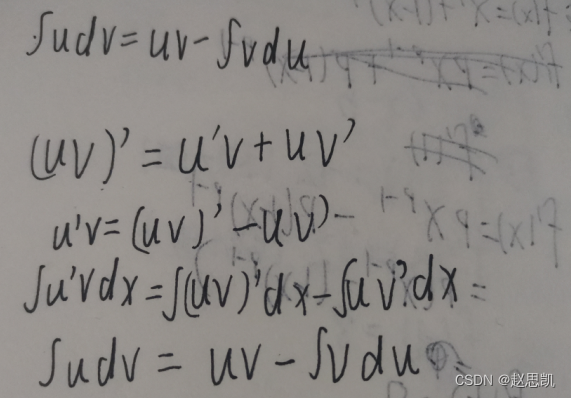 ∫udv=uv-∫vdu
(uv)'=u'v+uv'
u'v=(uv)'-uv'
∫u'vdx=∫(uv)'dx-∫uv'dx=
∫udv=uv-∫vdu
CSDN @赵思凯